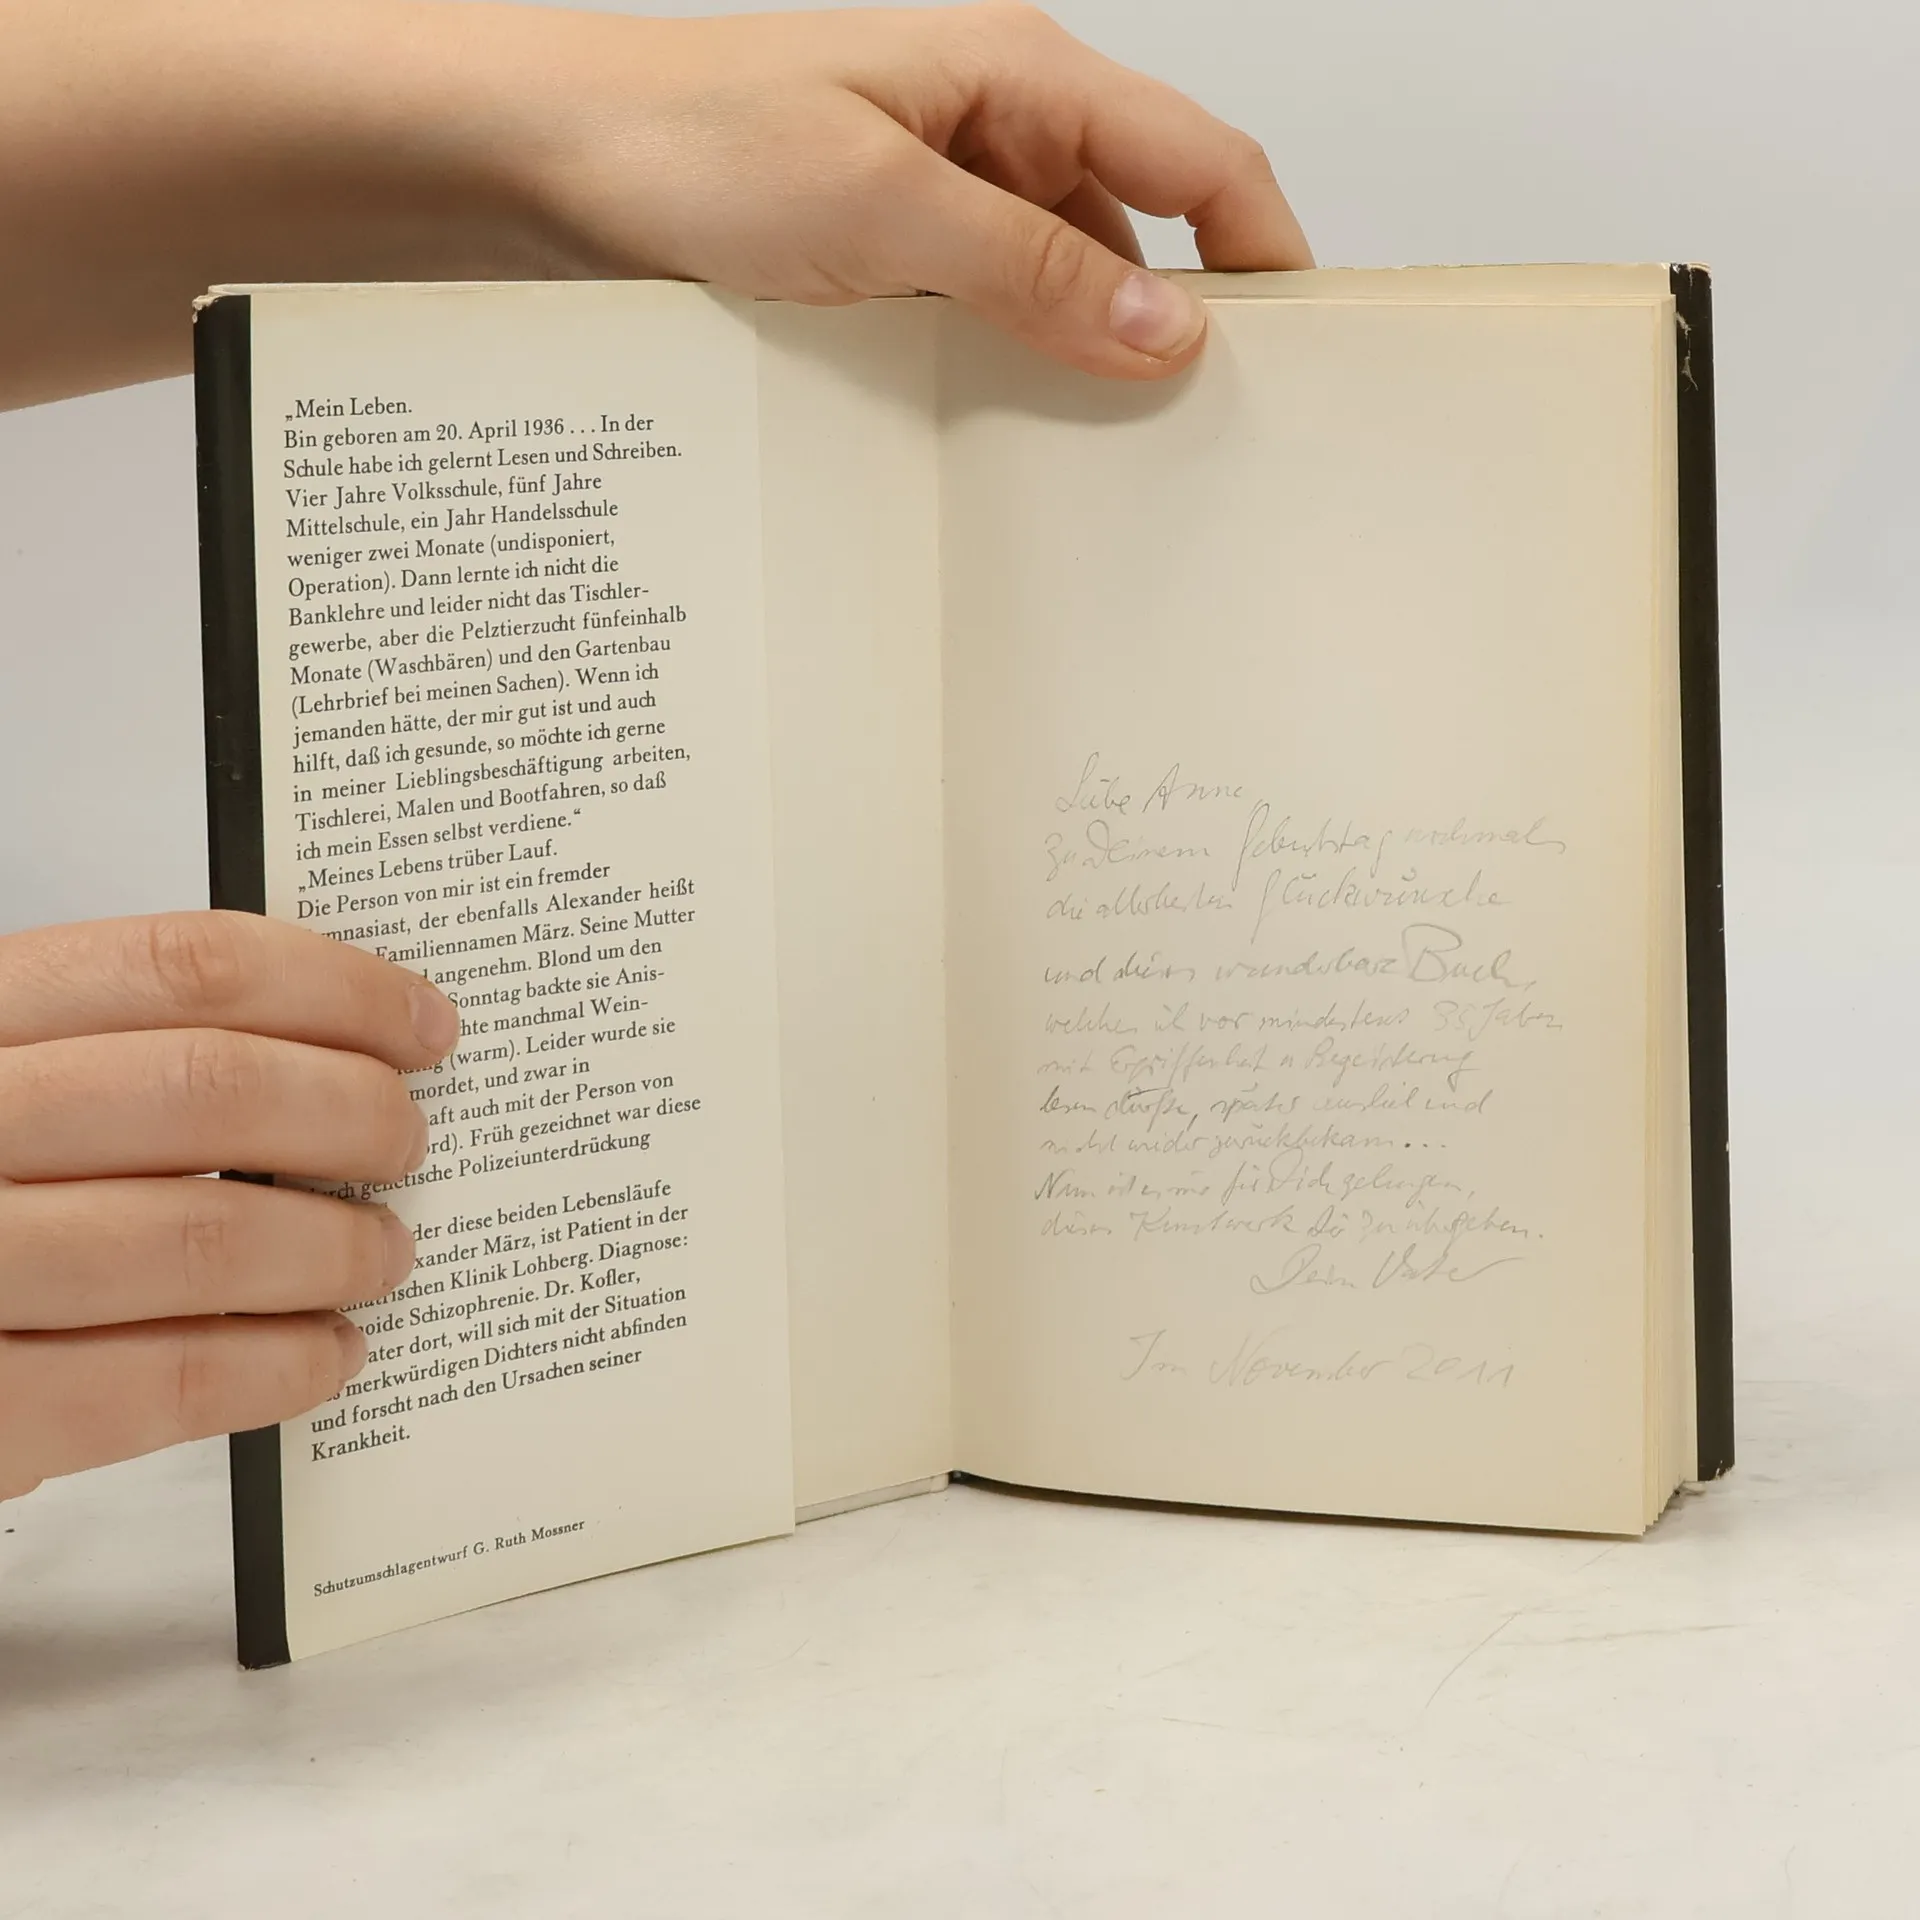 „Mein Leben.
Bin geboren am 20. April 1936 . . . In der
Schule habe ich gelernt Lesen und Schreiben.
Vier Jahre Volksschule, fünf Jahre
Mittelschule, ein Jahr Handelsschule
weniger zwei Monate (undisponiert,
Operation). Dann lernte ich nicht die
Banklehre und leider nicht das Tischler-
gewerbe, aber die Pelztierzucht fünfeinhalb
Monate (Waschbären) und den Gartenbau
(Lehrbrief bei meinen Sachen). Wenn ich
jemanden hätte, der mir gut ist und auch
hilft, daß ich gesunde, so möchte ich gerne
in meiner Lieblingsbeschäftigung arbeiten,
Tischlerei, Malen und Bootfahren, so daß
ich mein Essen selbst verdiene.“
„Meines Lebens trüber Lauf.
Die Person von mir ist ein fremder
mnasiast, der ebenfalls Alexander heißt
Familiennamen März. Seine Mutter
angenehm. Blond um den
Sonntag backte sie Anis-
hte manchmal Wein-
(warm). Leider wurde sie
mordet, und zwar in
aft auch mit der Person von
ord). Früh gezeichnet war diese
durch genetische Polizeiunterdrückung
der diese beiden Lebensläufe
xander März, ist Patient in der
ischen Klinik Lohberg. Diagnose:
oide Schizophrenie. Dr. Kofler,
ater dort, will sich mit der Situation
merkwürdigen Dichters nicht abfinden
und forscht nach den Ursachen seiner
Krankheit.
Schutzumschlagentwurf G. Ruth Mossner
Liebe Anne,
zu Deinem Geburtstag nochmals
die allerbesten Glückwünsche
und dieses wunderbare Buch,
welches ich vor mindestens 35 Jahren
mit Ergriffenheit u Begeisterung
lesen durfte, später auslieh und
nicht wieder zurückbekam...
Nun ist es mir für Dich gelungen,
dieses Kunstwerk Dir zu übergeben.
Dein Vater
Im November 2011